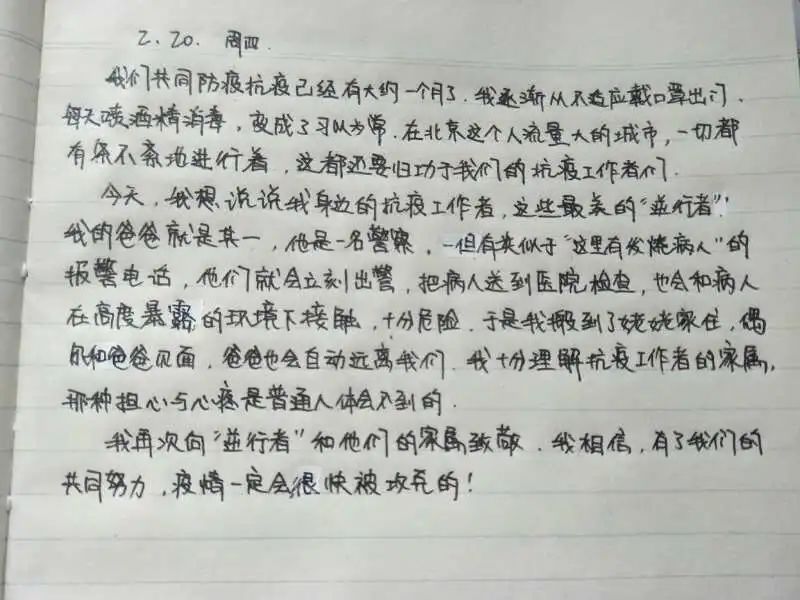 2.20. 周四.
我们共同防疫抗疫已经有大约一个月了.我逐渐从不适应戴口罩出门、
每天喷酒精消毒,变成了习以为常.在北京这个人流量大的城市,一切都
有条不紊地进行着,这都还要归功于我们的抗疫工作者们.
今天,我想说说我身边的抗疫工作者,这些最美的“逆行者”.
我的爸爸就是其一,他是一名警察,一但有类似于“这里有发烧病人”的
报警电话,他们就会立刻出警,把病人送到医院检查,也会和病人
在高度暴露的环境下接触,十分危险.于是我搬到了姥姥家住,偶
尔和爸爸见面,爸爸也会自动远离我们.我十分理解抗疫工作者的家属,
那种担心与心疼是普通人体会不到的.
我再次向“逆行者”和他们的家属致敬.我相信,有了我们的
共同努力,疫情一定会很快被攻克的!